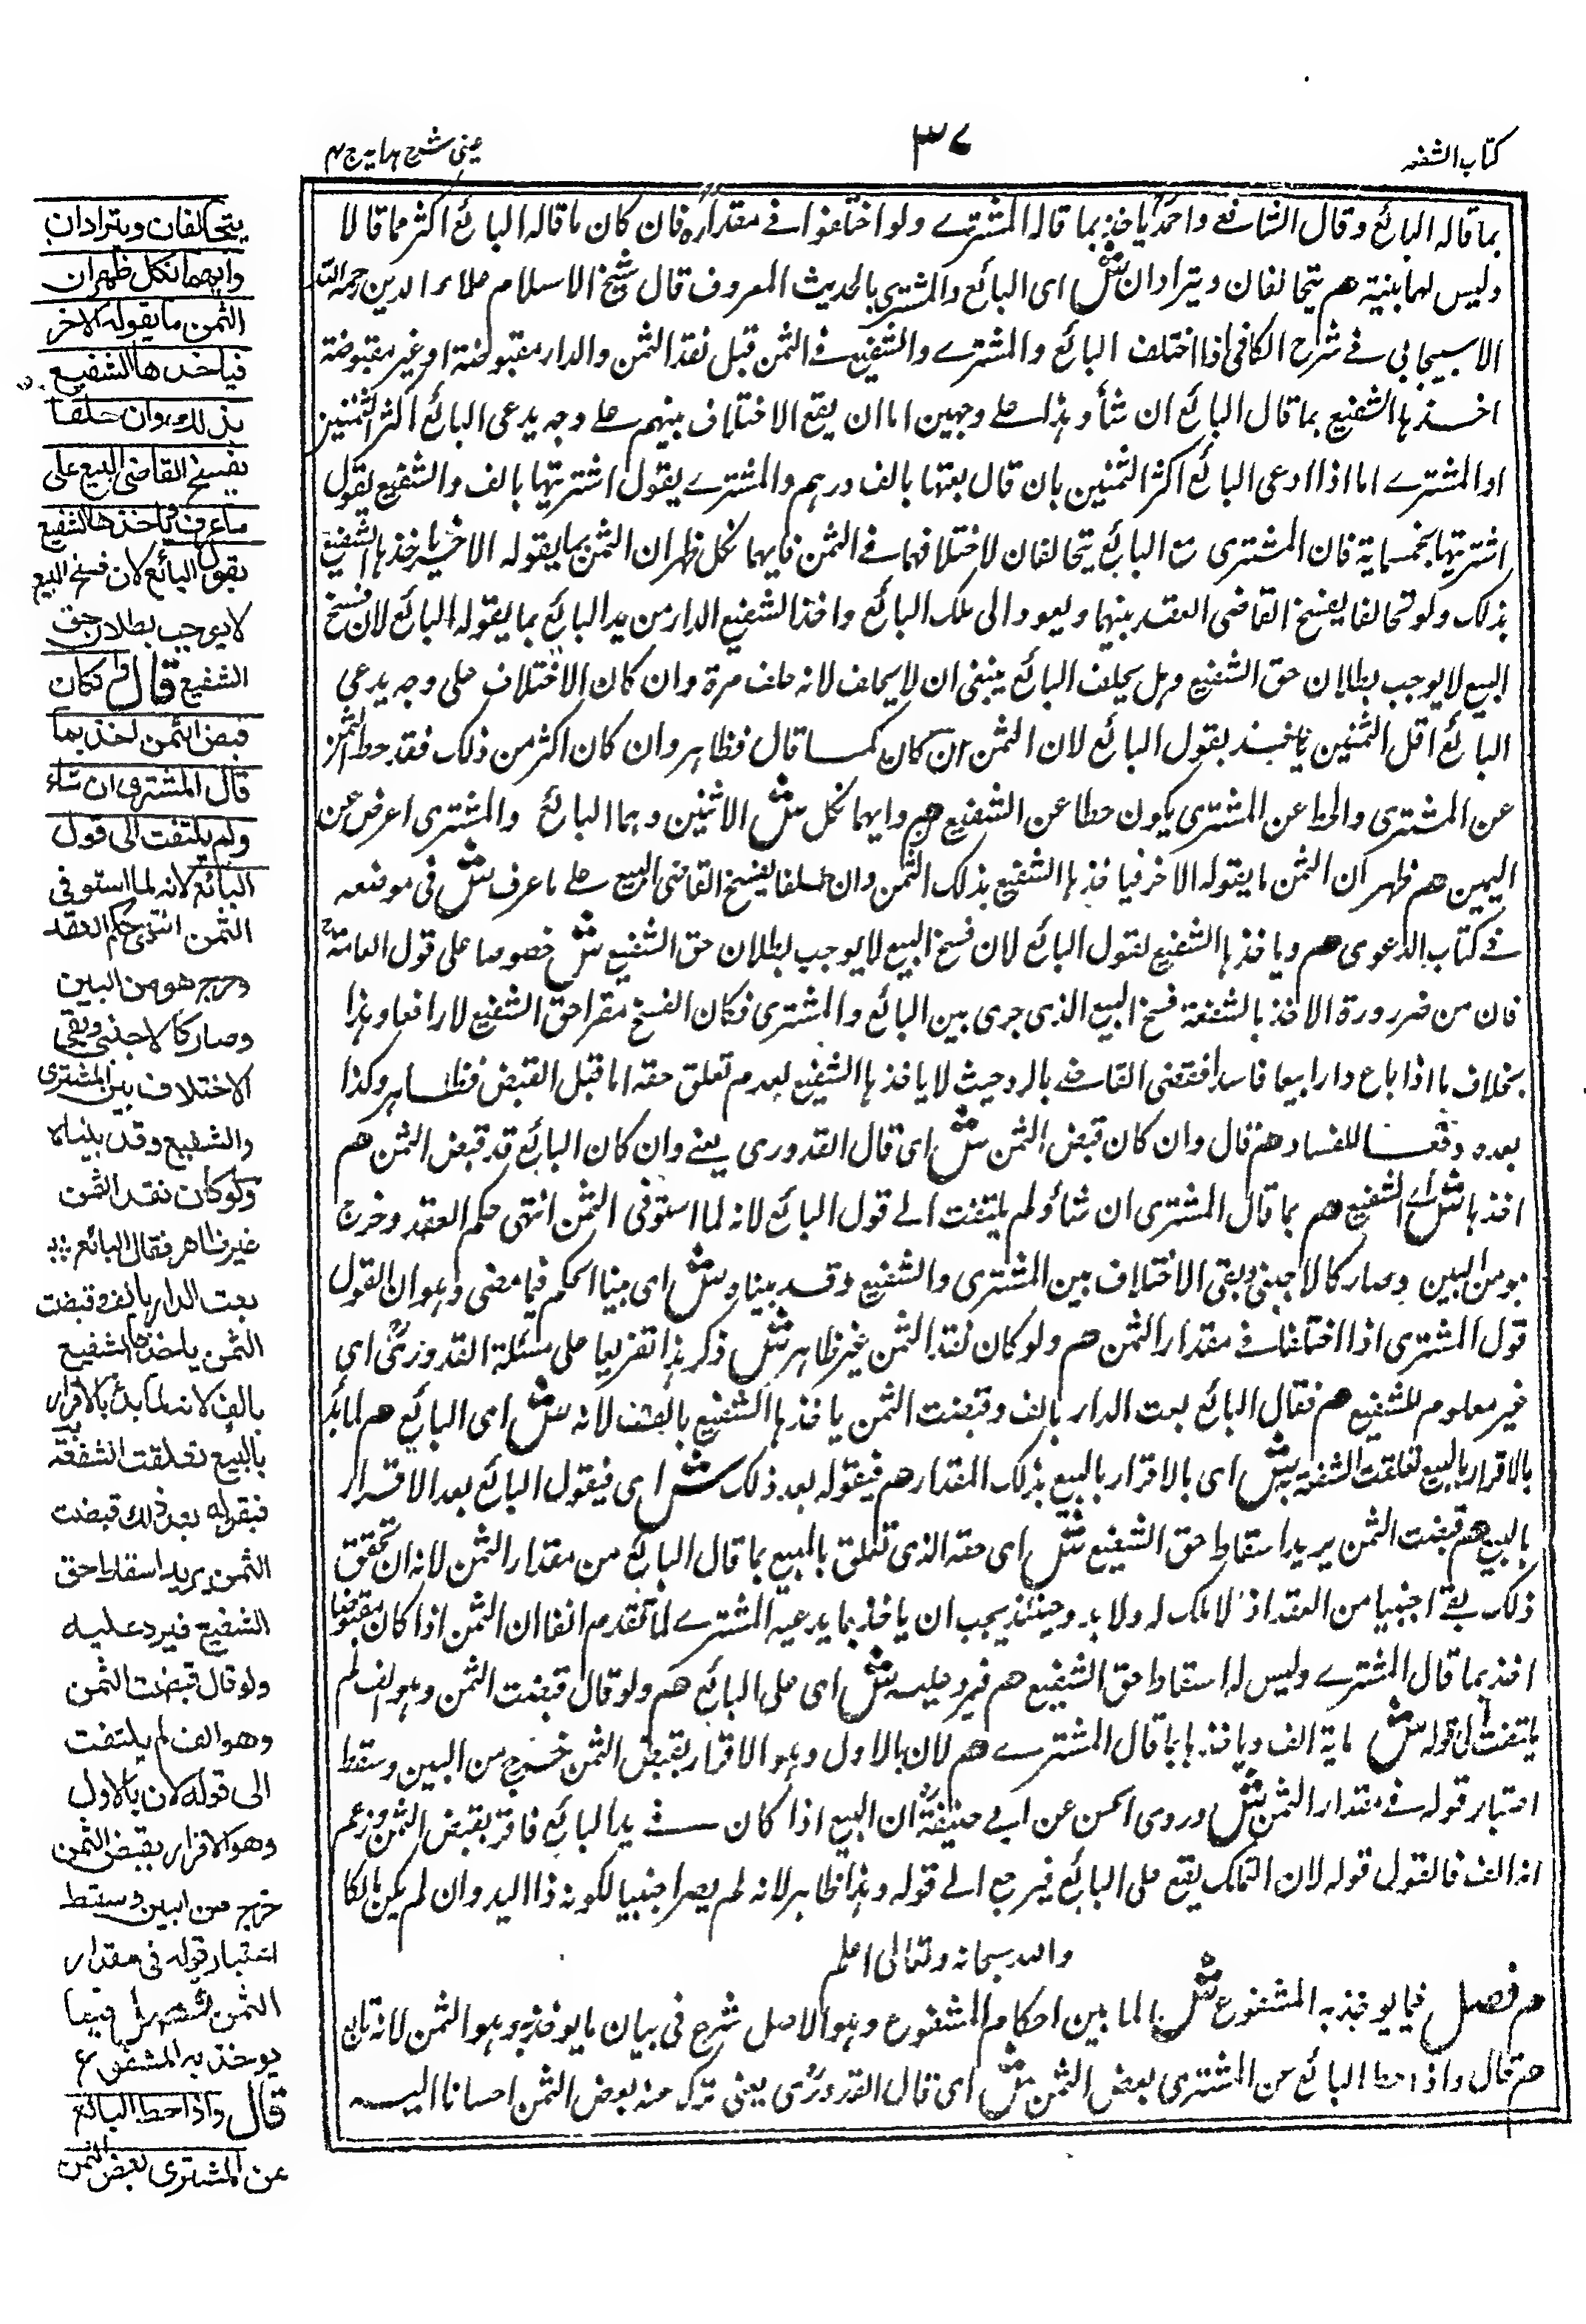 كتاب الشفعہ
٣٧
عینی شرح ہدایہ ج ٣
بما قالہ البائع وقال الشافعے واحمد یاخذ بما قالہ المشترے ولو اختلفوا فے مقدارہ فان کان ما قالہ البائع اکثر مما قالا
ولیس لہما بینۃ ھم یتحالفان ویترادان ش ای البائع والمشتری بالحدیث المعروف قال شیخ الاسلام علاء الدین رحمہ اللہ
الاسبیجابی فے شرح الکافی اذا اختلف البائع والمشترے والشفیع فے الثمن قبل نقد الثمن والدار مقبوضۃ او غیر مقبوضۃ
اخذہا الشفیع بما قال البائع ان شأ وہذا علے وجہین اما ان یقع الاختلاف بینہم علے وجہ یدعی البائع اکثر الثمنین
او المشترے اما اذا ادعی البائع اکثر الثمنین بان قال بعتہا بالف درہم والمشترے یقول اشتریتہا بالف والشفیع یقول
اشتریتہا بخمسمایۃ فان المشتری مع البائع یتحالفان لاختلافہما فے الثمن فایہما نکل ظہر ان الثمن بما یقولہ الاخر یاخذہا الشفیع
بذلک ولو تحالفا یفسخ القاضی العقد بینہما ویعود الی ملک البائع واخذ الشفیع الدار من ید البائع بما یقولہ البائع لان فسخ
البیع لا یوجب بطلان حق الشفیع وہل یحلف البائع ینبغی ان لا یحلف لانہ حلف مرۃ وان کان الاختلاف علی وجہ یدعی
البائع اقل الثمنین یاخذ بقول البائع لان الثمن ان کان کما قال فظاہر وان کان اکثر من ذلک فقد حط الثمن
عن المشتری والحط عن المشتری یکون حطا عن الشفیع ھم وایہما نکل ش الاثنین وہما البائع والمشتری اعرض عن
الیمین ھم ظہر ان الثمن ما یقولہ الاخر فیاخذہا الشفیع بذلک الثمن وان حلفا یفسخ القاضی البیع علے ما عرف ش فی موضعہ
فے کتاب الدعوی ھم ویاخذہا الشفیع بقول البائع لان فسخ البیع لا یوجب بطلان حق الشفیع ش خصوصا علی قول العامۃ
فان من ضرورۃ الاخذ بالشفعۃ فسخ البیع الذی جری بین البائع والمشتری فکان الفسخ مقررا حق الشفیع لا رافعا وہذا
بخلاف ما اذا باع دارا بیعا فاسدا فقضی القاضے بالرد حیث لا یاخذہا الشفیع لعدم تعلق حقہ اما قبل القبض فظاہر وکذا
بعدہ دفعا للفساد ھم قال وان کان قبض الثمن ش ای قال القدوری یعنے وان کان البائع قد قبض الثمن ھم
اخذہا ش اے الشفیع ھم بما قال المشتری ان شأ ولم یلتفت الے قول البائع لانہ لما استوفی الثمن انتہی حکم العقد وخرج
ہو من البین وصار کالاجنبی وبقی الاختلاف بین المشتری والشفیع وقد بیناہ ش ای بینا الحکم فیما مضی وہو ان القول
قول المشتری اذا اختلفا فے مقدار الثمن ھم ولو کان نقد الثمن غیر ظاہر ش ذکر ہذا تفریعا علی مسئلۃ القدوری ای
غیر معلوم للشفیع ھم فقال البائع بعت الدار بالف وقبضت الثمن یاخذہا الشفیع بالف لانہ ش ای البائع ھم لما بدأ
بالاقرار بالبیع تعلقت الشفعۃ بہ ش ای بالاقرار بالبیع بذلک المقدار ھم فبقولہ بعد ذلک ش ای فبقول البائع بعد الاقرار
بالبیع ھم قبضت الثمن یرید اسقاط حق الشفیع ش ای حقہ الذی تعلق بالبیع بما قال البائع من مقدار الثمن لانہ ان تحقق
ذلک بقے اجنبیا من العقد اذ لا ملک لہ ولا ید وحینئذ یجب ان یاخذ بما یدعیہ المشترے لما تقدم انفا ان الثمن اذا کان مقبوضا
اخذ بما قال المشترے ولیس لہ اسقاط حق الشفیع ھم فیرد علیہ ش ای علی البائع ھم ولو قال قبضت الثمن وہو الف لم
یلتفت الی قولہ ش مایۃ الف ویاخذہا بما قال المشترے ھم لان بالاول وہو الاقرار بقبض الثمن خرج من البین وسقط
اعتبار قولہ فے مقدار الثمن ش وروی الحسن عن ابے حنیفۃ ان البیع اذا کان فے ید البائع فاقر بقبض الثمن وزعم
انہ الف فالقول قولہ لان التملک یقع علی البائع فیرجع الے قولہ وہذا ظاہر لانہ لم یصر اجنبیا لکونہ ذا الید وان لم یکن مالکا
واللہ سبحانہ وتعالی اعلم
ھم فصل فیما یوخذ بہ المشفوع ش لما بین احکام المشفوع وہو الاصل شرع فی بیان ما یوخذ بہ وہو الثمن لانہ تابع
ھم قال واذا حط البائع عن المشتری بعض الثمن ش ای قال القدوری یعنی ترک منہ بعض الثمن احسانا الیہ
یتحالفان ویترادان
وایھما نکل ظھر ان
الثمن ما یقولہ الاخر
فیاخذھا الشفیع
بذلك وان حلفا
یفسخ القاضی البیع علی
ما عرف ویاخذھا الشفیع
بقول البائع لان فسخ البیع
لا یوجب بطلان حق
الشفیع قال وان کان
قبض الثمن اخذ بما
قال المشتری ان شاء
ولم یلتفت الی قول
البائع لانہ لما استوفی
الثمن انتھی حکم العقد
وخرج ھو من البین
وصار کالاجنبی وبقی
الاختلاف بین المشتری
والشفیع وقد بیناہ
ولو کان نقد الثمن
غیر ظاھر فقال البائع
بعت الدار بالف وقبضت
الثمن یاخذھا الشفیع
بالف لانہ لما بدأ بالاقرار
بالبیع تعلقت الشفعۃ بہ
فبقولہ بعد ذلك قبضت
الثمن یرید اسقاط حق
الشفیع فیرد علیہ
ولو قال قبضت الثمن
وھو الف لم یلتفت
الی قولہ لان بالاول
وھو الاقرار بقبض الثمن
خرج من البین وسقط
اعتبار قولہ فی مقدار
الثمن فصل فیما
یوخذ بہ المشفوع
قال واذا حط البائع
عن المشتری بعض الثمن